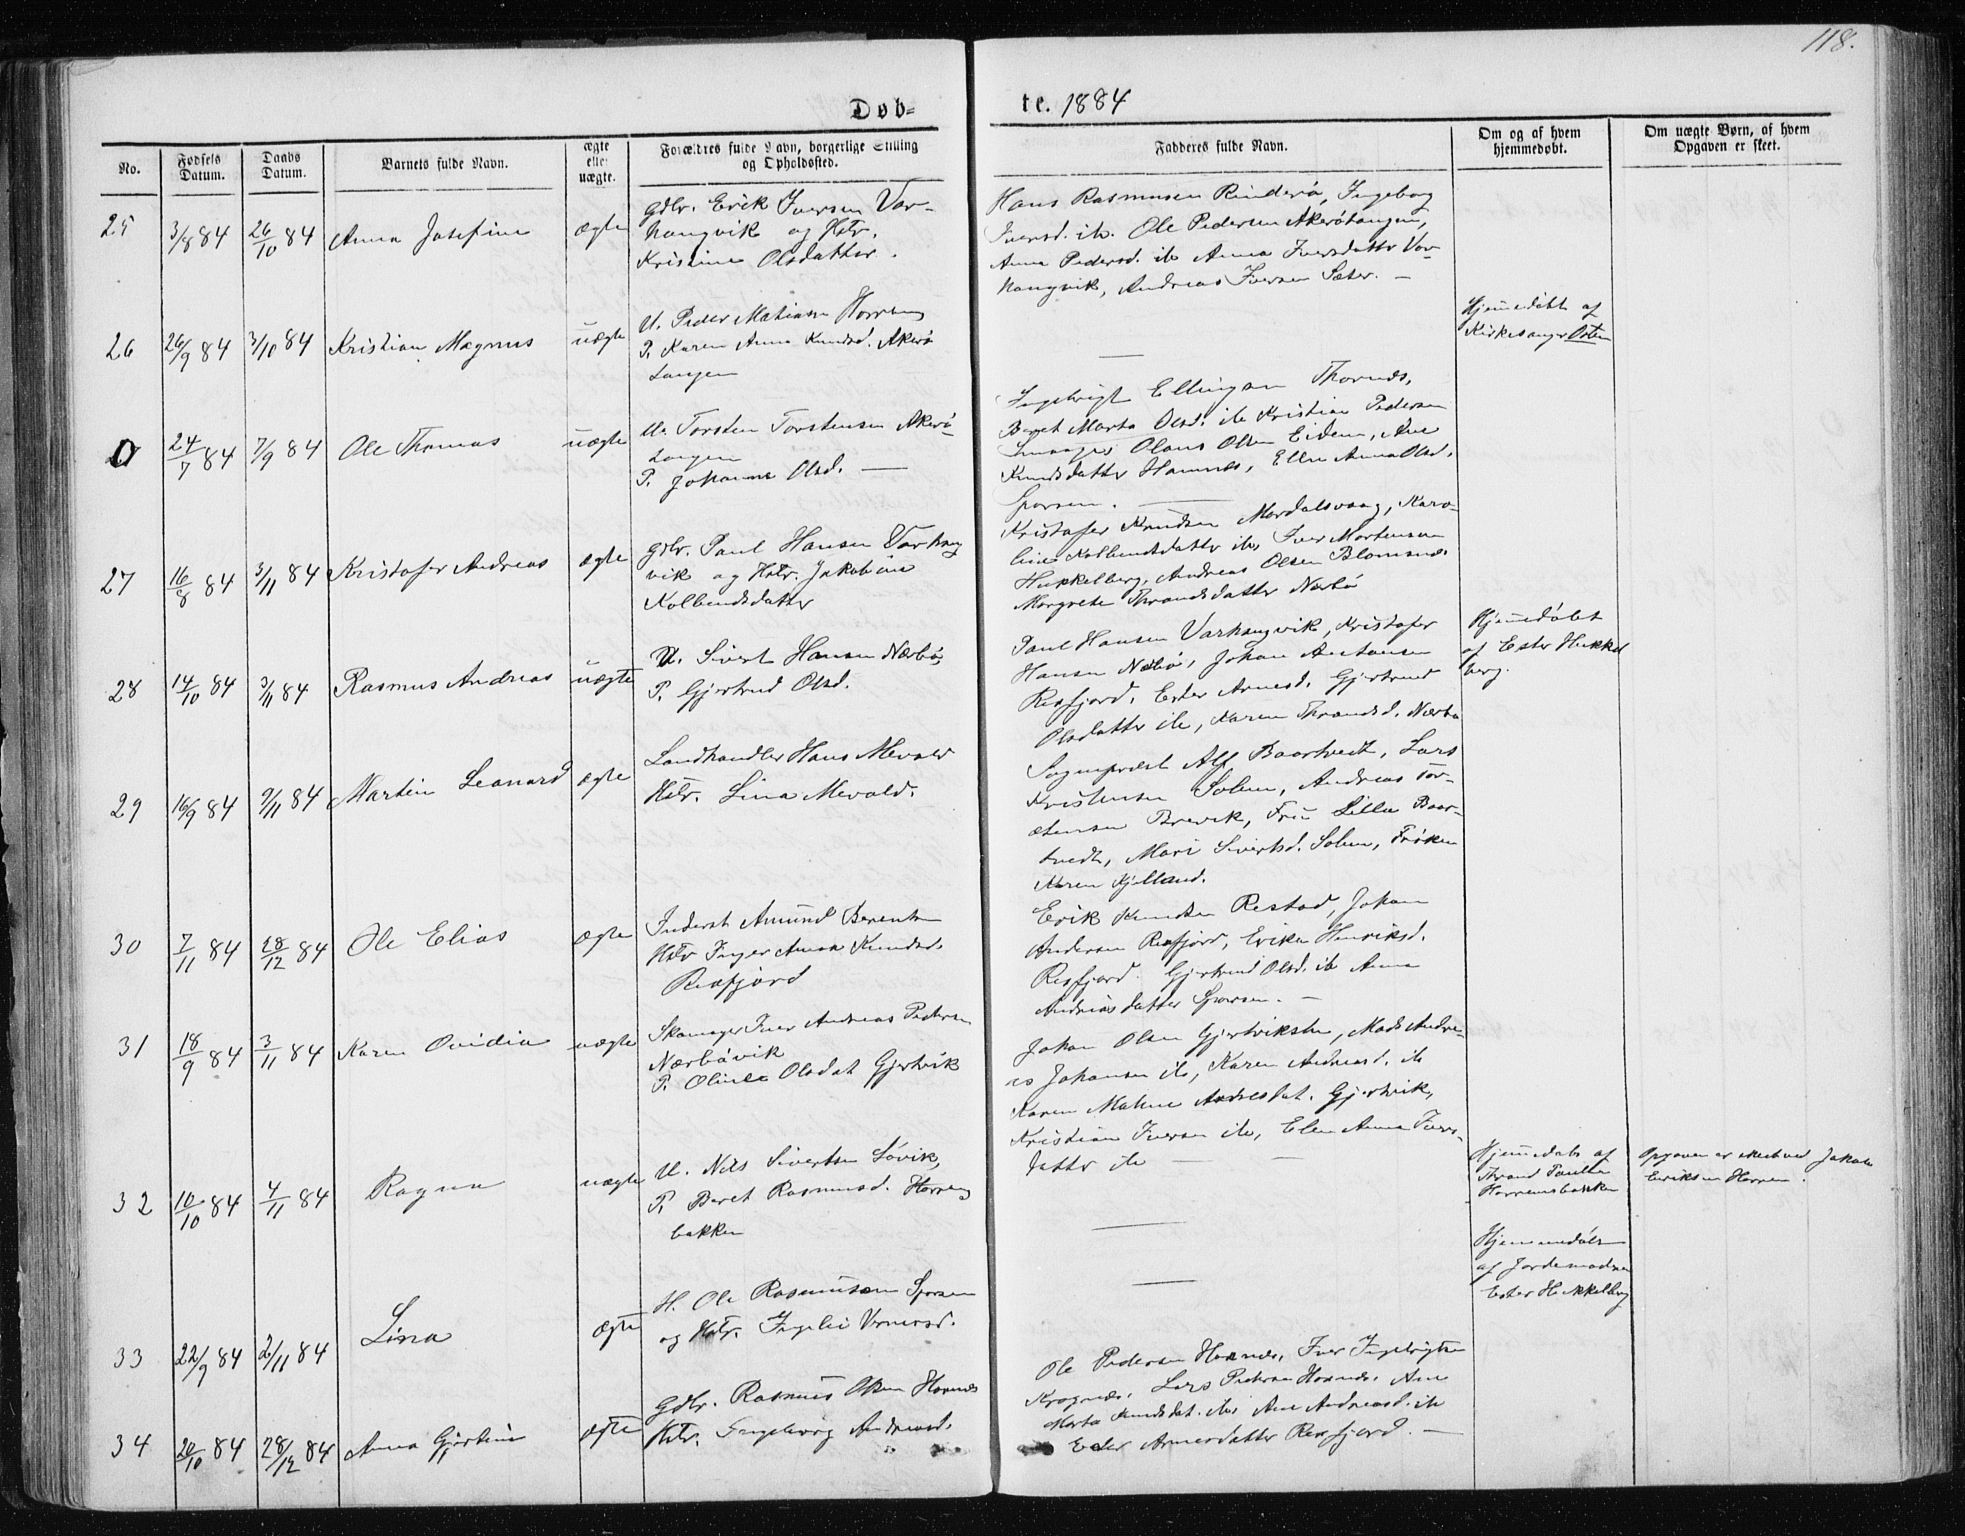 118.
Døb-
te. 1884
No.
Fødsels Datum.
Daabs Datum.
Barnets fulde Navn.
ægte eller uægte.
Forældres fulde Navn, borgerlige Stilling og Opholdssted.
Fadderes fulde Navn.
Om og af hvem hjemmedøbt.
Om uægte Børn, af hvem Opgaven er skeet.
25
3/8 84
26/10 84
Anna Josefine
ægte
Gdbr. Erik Iversen Var-
hangvik og Hstr.
Kristine Olsdatter.
Hans Rasmusen Rinderö, Ingeborg
Iversd. ib. Ole Pedersen Akerötangen,
Anna Pedersd. ib Anna Iversdattr Var-
hangvik, Andreas Iversen Sæter. —
26
26/9 84
3/10 84
Kristian Magnus
uægte
U. Peder Matiasen Horrem
P. Karen Anna Knudsd. Akerö
tangen
—
Hjemmedöbt af
Kirkesanger Osten
0
24/7 84
7/9 84
Ole Thomas
uægte
U. Torsten Torstensen Akerö-
tangen
P. Johanna Olsd. —
Ingebrigt Ellingsen Thornes,
Beret Marta Olsd. ib Kristian Pedersen
Olaus Olsen Eidem, Ane
Knudsdatter Hamnes, Ellen Anna Olsd.
Sporsem. —
27
16/8 84
3/11 84
Kristofer Andreas
ægte
Gdbr. Paul Hansen Varhang
vik og Hstr. Jakobine
Kolbendsdatter
Kristofer Knudsen Mordalsvaag, Karo-
line Kolbendsdattr ib, Iver Mortensen
Hukkelberg, Andreas Olsen Blomsnes
Margrete Thrandsdatter Nærbö
28
14/10 84
3/11 84
Rasmus Andreas
uægte
U. Sivert Hansen Nærbö,
P. Gjertrud Olsd.
Paul Hansen Varhangvik, Kristofer
Hansen Nærbö, Johan Antonsen
Rosfjord, Ester Arnesd. Gjertrud
Olsdatter ib, Karen Thrandsd. Nærbö
Hjemmedöbt
af Ester Hukkel
berg.
29
16/9 84
9/11 84
Martin Leonard
ægte
Landhandler Hans Mevold
Hstr. Lina Mevold.
Sognepræst Alf Baartvedt, Lars
Kristensen Solem, Andreas Tor-
stensen Brevik, Fru Lilla Baar-
tvedt, Mari Sivertsd. Solem, Fröken
Karen Kjelland.
30
7/11 84
28/12 84
Ole Elias
ægte
Inderst Amund Berentsen
Hstr Inger Anna Knudsd.
Rosfjord
Erik Knudsen Restad, Johan
Andersen Rosfjord, Erika Henriksd.
Rosfjord. Gjertrud Olsd. ib Anna
Andreasdatter Sporsem. —
31
18/9 84
3/11 84
Karen Ovidia
uægte
Skomager Iver Andreas Pedersen
Nærbövik
P. Oline Olsdat Gjertvik
Johan Olsen Gjertvik, Mads Andre-
as Johansen ib, Karen Andreasd. ib
Karen Malene Andresdat. Gjertvik,
Kristian Iversen ib, Elen Anna Ivers-
datter ib —
32
10/10 84
4/11 84
Ragna
uægte
U. Nils Sivertsen Lövik,
P. Beret Rasmusd. Horrems
bakken
—
Hjemmedöbt af
Thrand Paulsen
Horremsbakken
Opgaven er skeet ved Jakob
Eriksen Horrem.
33
22/9 84
2/11 84
Lina
ægte
H. Ole Rasmussen Sporsem
og Hstr. Ingeborg
—
Hjemmedöbt
af Jordemoder
Ester Hukkelberg
34
20/10 84
28/12 84
Anna Gjertine
ægte
Gdbr. Rasmus Olsen Hoxnes
Hstr. Ingeborg Andreasd.
Ole Pedersen Hoxnes, Iver Ingebrigtsen
Krognæs, Lars Pedersen Hoxnes, Ane
Marta Knudsdat. ib, Ane Andreasd. ib
Ester Arnesdatter Rosfjord. —